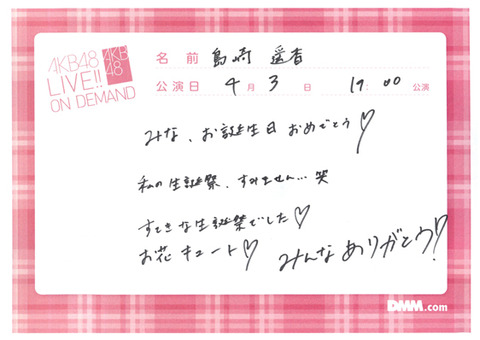 AKB48
LIVE!!
ON DEMAND
AKB
48
名前 島崎 遥香
公演日 4月3日 17:00 公演
みな、お誕生日 おめでとう♡
私の生誕祭、すみません…笑
すてきな生誕祭でした♡
お花 キュート♡
みんなありがとう♡
DMM.com